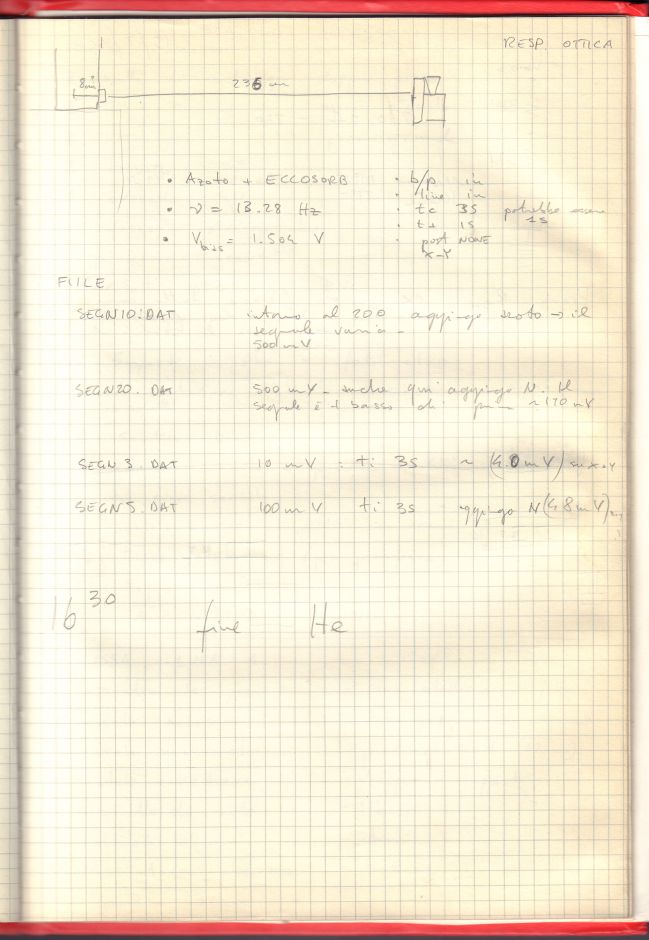 RESP. OTTICA
8 cm
236 cm
• Azoto + ECCOSORB
• ν = 13.28 Hz
• Vbias = 1.504 V
• b/p in
• line in
• tc 3S potrebbe essere 1S
• t+ 1S
• post NONE
X-Y
FIILE
SEGN10.DAT intorno al 200 aggiungo azoto → il
segnale varia -
500 mV
SEGN20.DAT 500 mV - anche qui aggiungo N. Il
segnale è + basso di prima ~170 mV
SEGN3.DAT 10 mV : ti 3S ~ (4.0 mV) su x-y
SEGN5.DAT 100 mV ti 3S aggiungo N (4.8 mV)
16 30 fine He